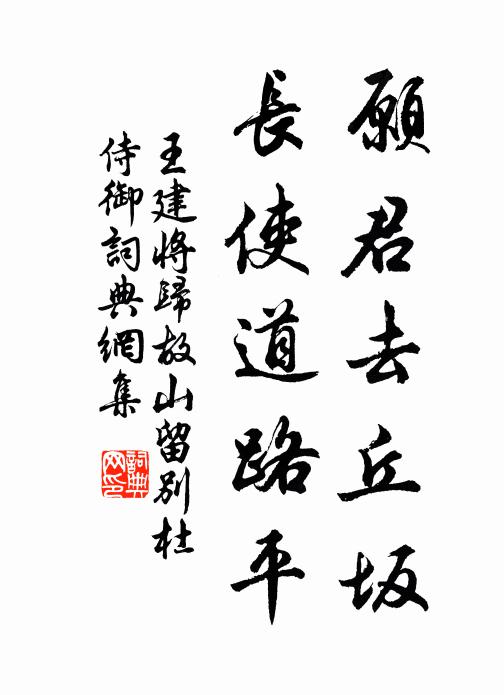 願君去丘坂
長使道路平
王建將歸故山留別杜
侍御詞典網集
詞典
网印